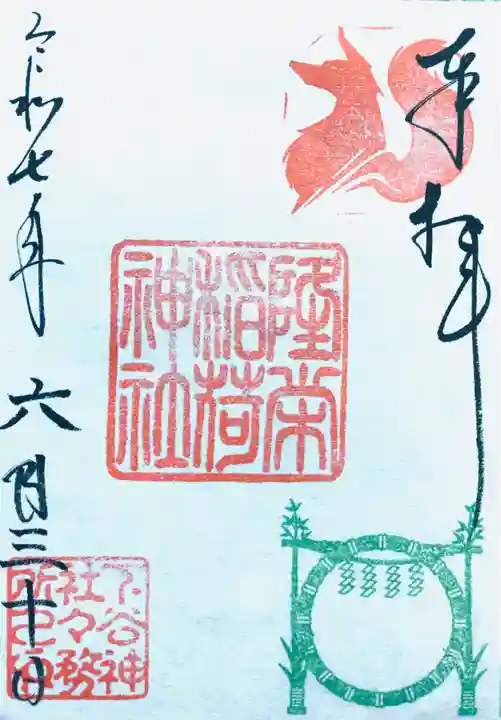 奉拝
隆栄
稲荷
神社
令和七年 六月三十日
下谷神
社々務
所之印